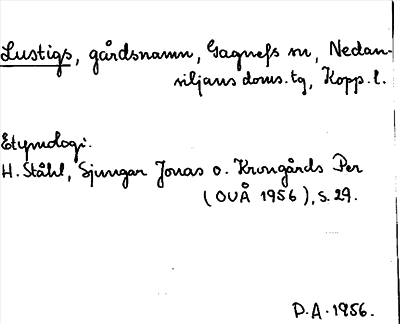 Lustigs, gårdsnamn, Gagnefs sn, Nedan-
siljans doms.tg, Kopp.l.
Etymologi.
H. Ståhl, Sjungar Jonas o. Krongårds Per
(OUÅ 1956), s. 29.
D.A. 1956.